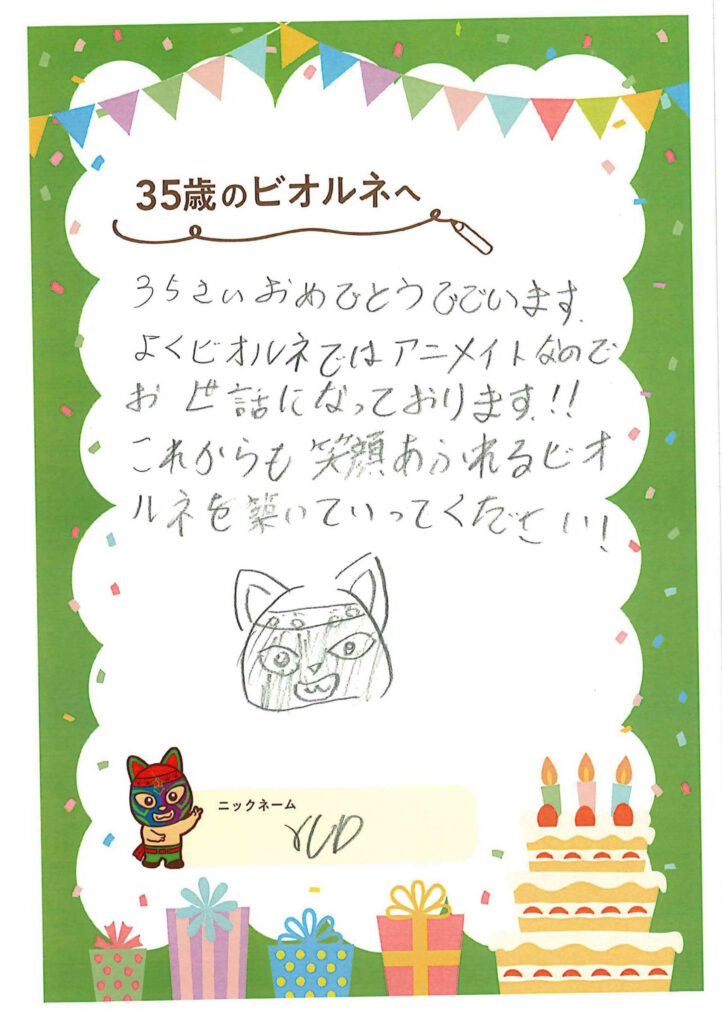 35歳のビオルネへ
35さいおめでとうございます.
よくビオルネではアニメイトなので
お世話になっております!!
これからも笑顔あふれるビオ
ルネを築いていってください!
ニックネーム